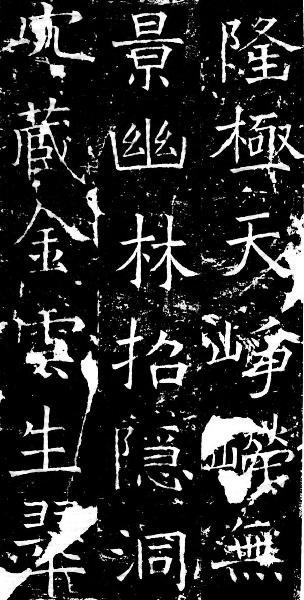 隆極天崢嶸無
景幽林招隱洞
穴藏金雲生翠